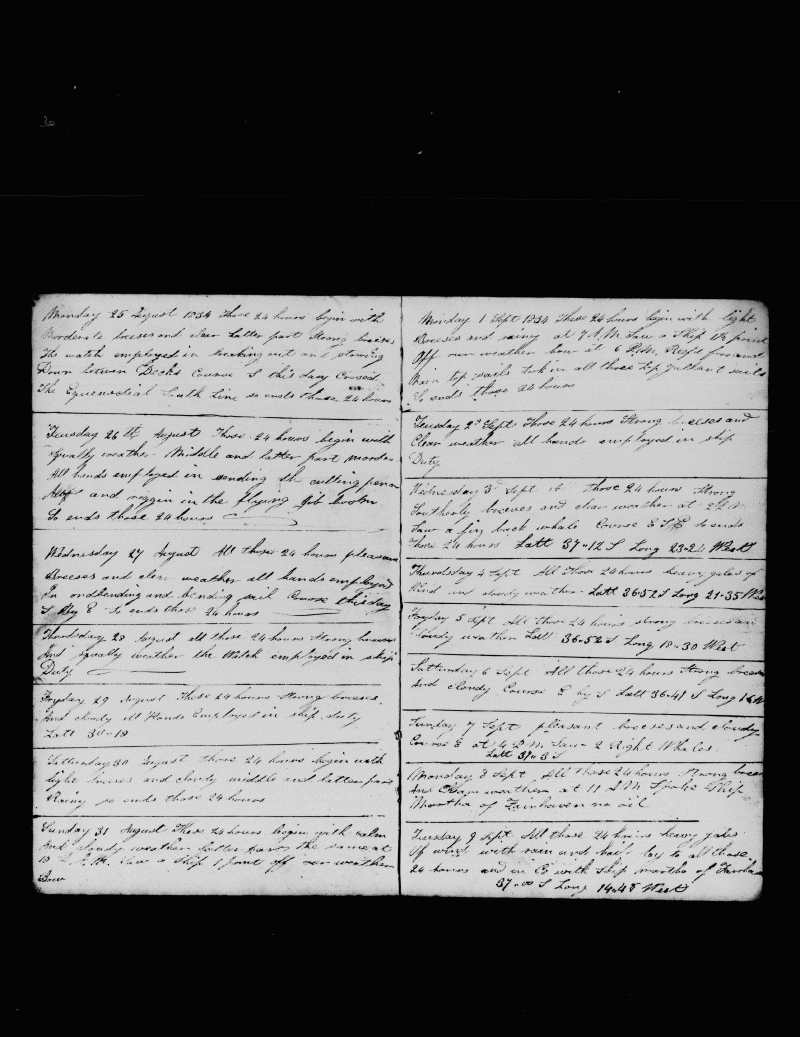 20
Monday 25 August 1834 Those 24 hours begin with
Morderate breises and clear Latter part Strong breises
The watch employed in breaking out and stowing
Down betwen Decks Course S this day Crosed
The Equenoctial Line so ends those 24 hours
Tuesday 26th August Those 24 hours begin with
Squally weather Middle and latter part morder
All hands employed in sending the cutting
and riggin in the flying jib boom
So ends those 24 hours
Wednesday 27 August All those 24 hours pleasant
Breeses and clear weather all hands employed
In ondbending and bending sail Course this day
S By E So ends those 24 hours
Thursday 28 August all those 24 hours Strong breeses
And squally weather the Watch employed in ship
Duty
Fryday 29 August These 24 hours Strong breeses
And cloudy all Hands Employed in ship duty
Latt 30-18
Satturday 30 August those 24 hours begin with
light breeses and cloudy middle and latter part
Rainy so ends those 24 hours
Sunday 31 August These 24 hours begin with calm
And cloudy weather latter part the same at
10 A.M. Saw a Ship 1 point off our weather
Bow
Monday 1 Sept 1834 These 24 hours begin with light
Breeses and rainy at 7 A.M. Saw a Ship 1½ point
Off our weather bow at 6 P.M. Reeft fore and
Main top sails took in all three top gallant sails
So ends those 24 hours
Tuesday 2d Sept Those 24 hours Strong breeses and
Clear weather all hands employed in ship
Duty
Wednesday 3d Sept those 24 hours Strong
Southerly breeses and clear weather at
Saw a fin back whale Course So ends
Those 24 hours Latt 37-12 S Long 23-24 West
Thursday 4 Sept All Those 24 hours heavy gales of
Wind and cloudy weather Latt 36-52 S Long 21-35 West
Fryday 5 Sept All those 24 hours strong breeses an
Cloudy weather Latt 36-52 S Long 18-30 West
Satturday 6 Sept All those 24 hours Strong breeses
And cloudy Course E by S Latt 36-41 S Long
Sunday 7 Sept pleasant breeses and cloudy
Course E at 4 P.M. Saw 2 Right Whales
Latt 37-3 S
Monday 8 Sept All those 24 hours Strong breeses
And weather at 11 A.M. Spoke Ship
Martha of Fairhaven no oil
Tuesday 9 Sept All those 24 hours heavy gales
Of wind with rain and hail lay to all those
24 hours and in Co with Ship martha of
37-00 S Long 14-45 West